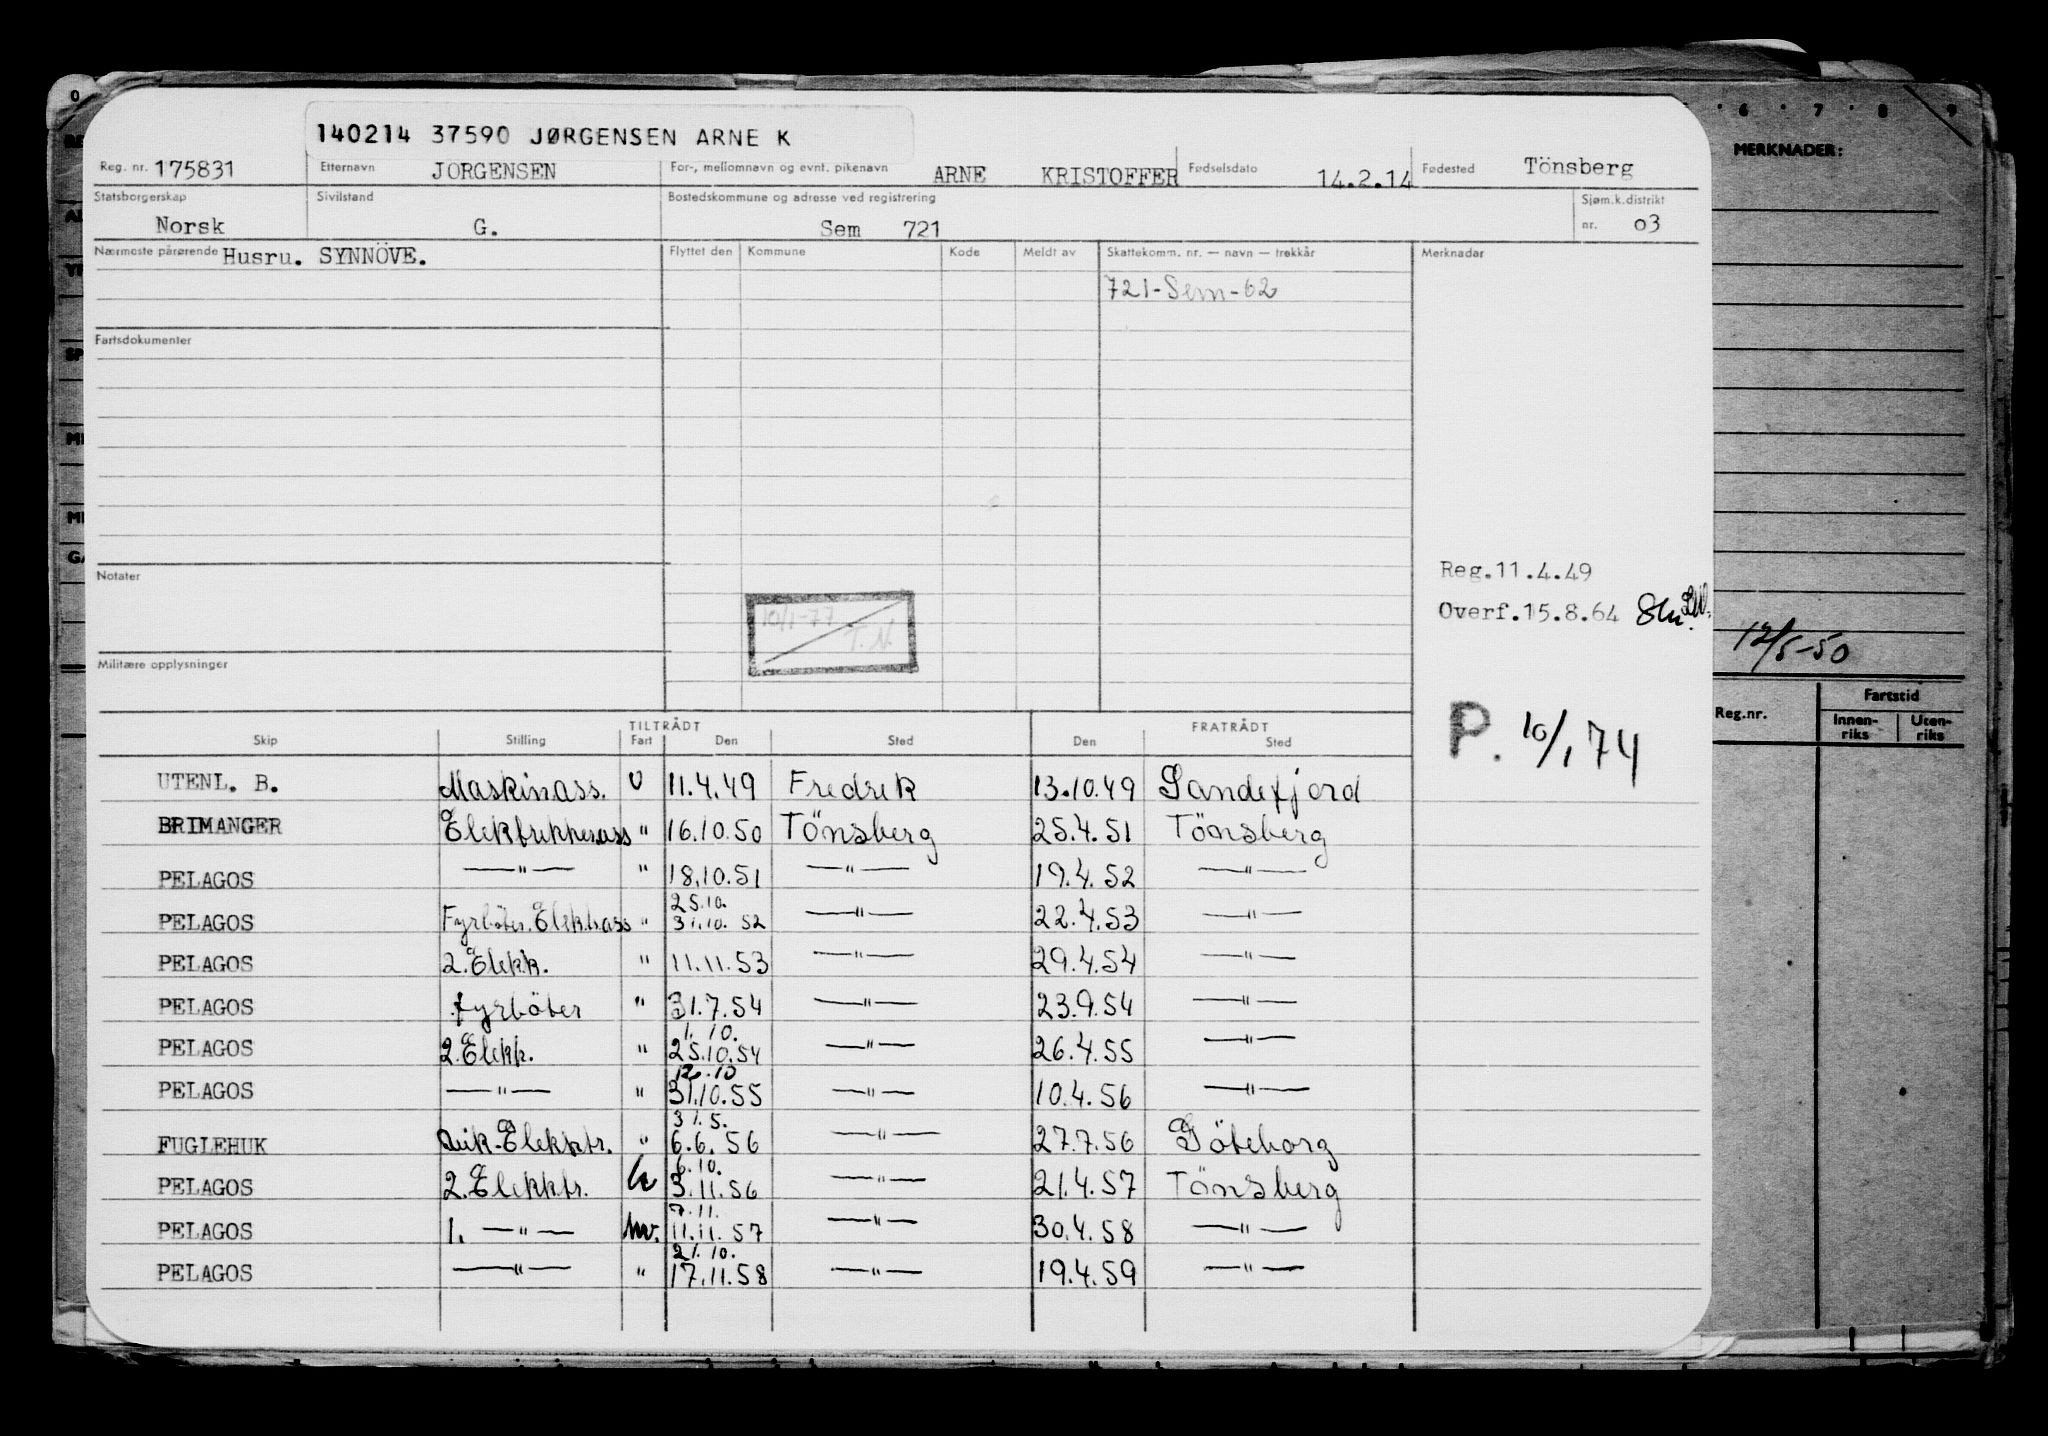 140214 37590 JØRGENSEN ARNE K
Reg. nr. 175831 Etternavn JORGENSEN For-, mellomnavn og evnt. pikenavn ARNE KRISTOFFER Fødselsdato 14.2.14 Fødested Tönsberg
Statsborgerskap Norsk Sivilstand G. Bostedskommune og adresse ved registrering Sem 721 Sjøm.k.distrikt nr. 03
Nærmeste pårørende Husru. SYNNÖVE. Flyttet den Kommune Kode Meldt av Skattekomm. nr. — navn — trekkår Merknader
721-Sem-62
Fartsdokumenter
Notater
10/1-77
T.N.
Militære opplysninger
Reg.11.4.49
Overf.15.8.64
P. 10/1 74
TILTRÅDT FRATRÅDT
Skip Stilling Fart Den Sted Den Sted
UTENL. B. Maskinass. U 11.4.49 Fredrik 13.10.49 Sandefjord
BRIMANGER Elektrikkerass " 16.10.50 Tönsberg 25.4.51 Tönsberg
PELAGOS —"— " 18.10.51 —"— 19.4.52 —"—
25.10.
PELAGOS Fyrböter. Elektr.ass " 31.10.52 —"— 22.4.53 —"—
PELAGOS 2.Elekk. " 11.11.53 —"— 29.4.54 —"—
PELAGOS fyrböter " 31.7.54 —"— 23.9.54 —"—
1.10.
PELAGOS 2.Elekk. " 25.10.54 —"— 26.4.55 —"—
12.10
PELAGOS —"— " 31.10.55 —"— 10.4.56 —"—
31.5.
FUGLEHUK Elekktr. " 6.6.56 —"— 27.7.56 Göteborg
6.10.
PELAGOS 2.Elekktr. 3.11.56 —"— 21.4.57 Tönsberg
7.11.
PELAGOS 1. —"— hv. 11.11.57 —"— 30.4.58 —"—
21.10.
PELAGOS —"— " 17.11.58 —"— 19.4.59 —"—
0 6 7 8 9
MERKNADER:
12/5-50
Reg.nr. Fartstid
Innen-riks Uten-riks